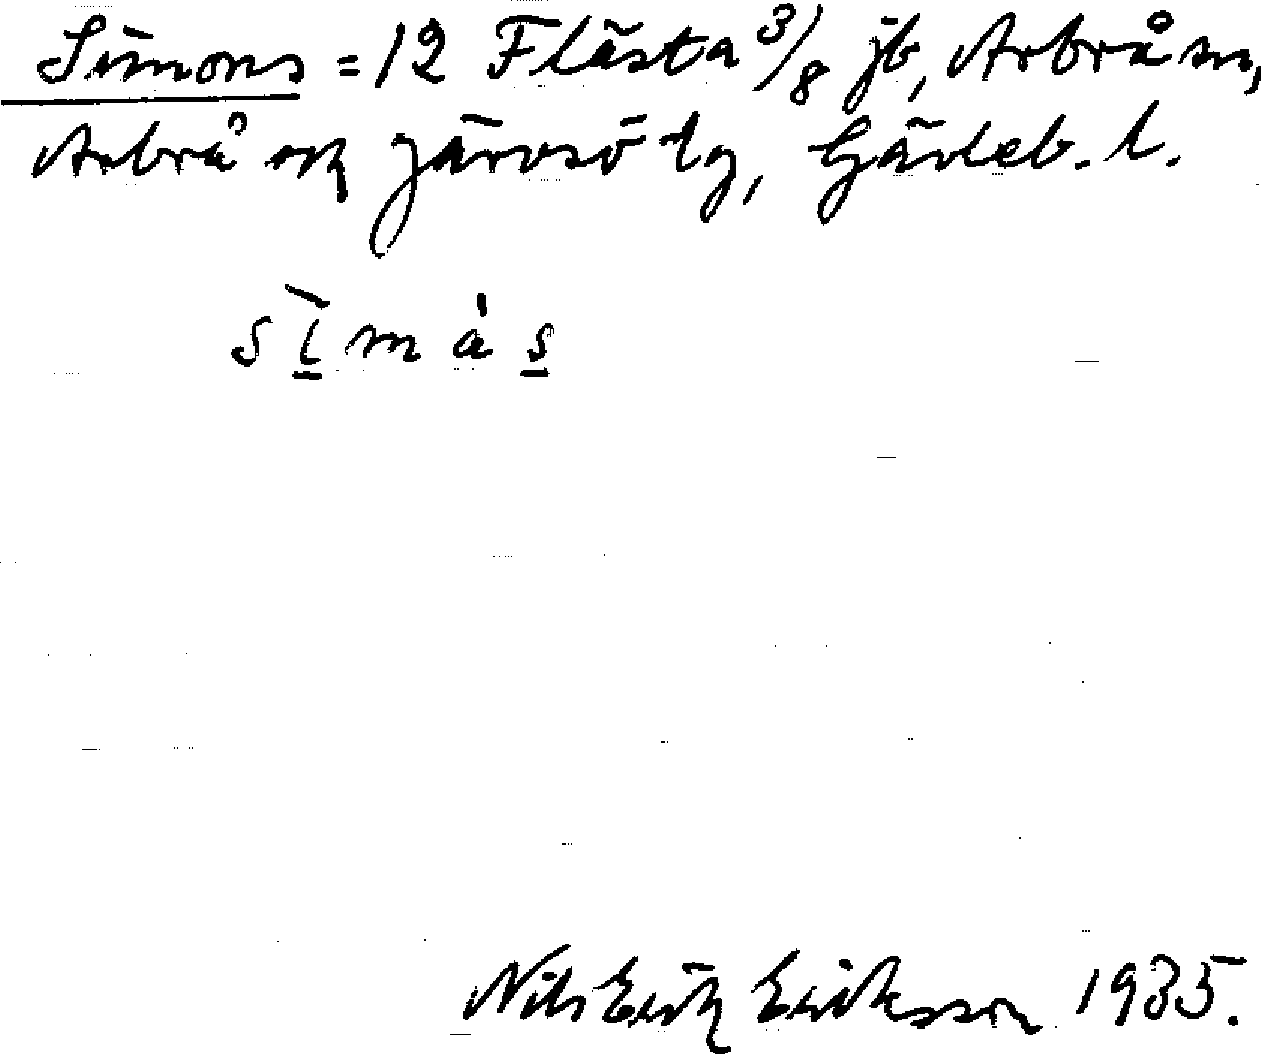 Simons = 12 Flästa 3/8 jb, Arbrå sn,
Arbrå och Järvsö tg, Gävleb. l.
sìmás
Nils Erik Eriksson 1935.